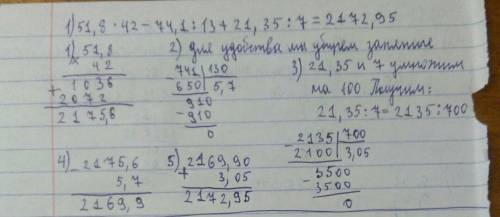 1) 51,8 · 42 − 74,1 : 13 + 21,35 : 7 = 2172,95
1) 51,8
× 42
1036
+ 2072
2175,6
2) для удобства мы уберем запятые
− 741 | 130
650 | 5,7
910
− 910
0
3) 21,35 и 7 умножим
на 100 Получим:
21,35 : 7 = 2135 : 700
− 2135 | 700
2100 | 3,05
− 3500
3500
0
4) − 2175,6
5,7
2169,9
5) 2169,90
+ 3,05
2172,95